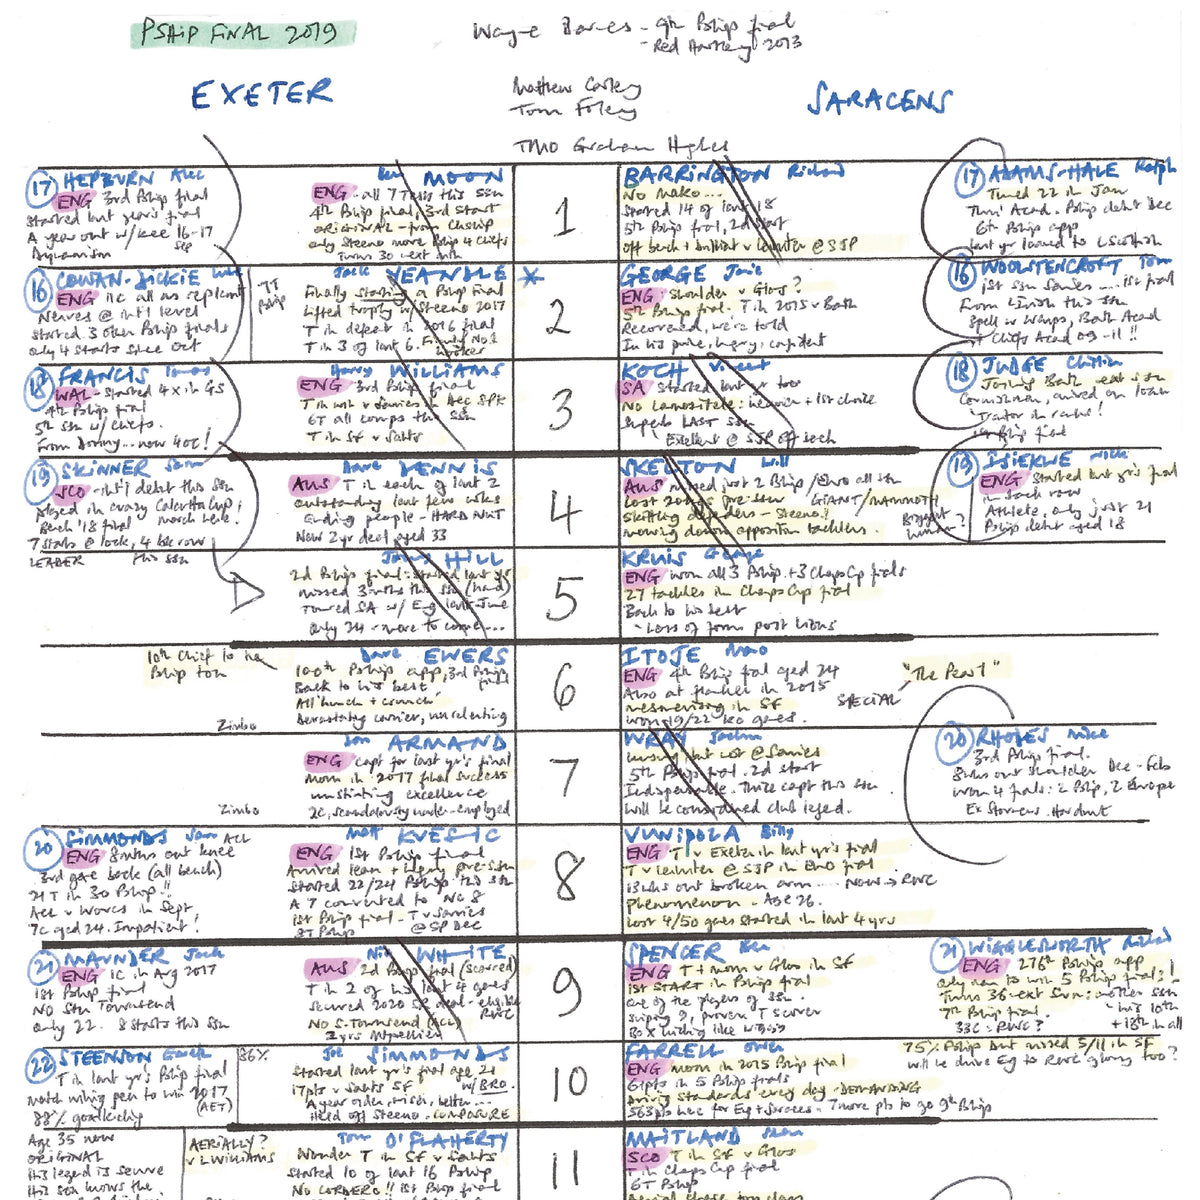 PSHIP FINAL 2019
Wayne Barnes - 9th Pship final
- Red Hartley 2013
EXETER
Matthew Carley
Tom Foley
SARACENS
TMO Graham Hughes
17 HEPBURN Alec
ENG 3rd Pship final
Started last year's final
A year out w/ knee 16-17
Sep
Dynamism
Ben MOON
ENG - all 7 Tests this ssn
4th Pship final, 3rd start
ORIGINAL - from Chship
only Steeno more Pship 4 Chiefs
Turns 30 next mth
1
BARRINGTON Richard
No Mako....
Started 14 of last 18
5th Pship final, 2d start
off bench + brilliant v Leinster @ SJP
17 ADAMS-HALE Ralph
Turned 22 in Jan
Thru' Acad. Pship debut Dec
6th Pship app
last yr loaned to L Scottish
16 COWAN-DICKIE Luke
ENG 11c all as replcmt
Nerves @ int'l level
Started 3 other Pship finals
only 4 starts since Oct
7T
Pship
Jack YEANDLE *
Finally starting a Pship final
Lifted trophy w/ Steeno 2017
T in defeat in 2016 final
T in 3 of last 6. Firmly No 1
hooker
2
GEORGE Jamie
ENG - shoulder v Glos?
5th Pship final. T in 2015 v Bath
Recovered, we're told
In his prime, hungry, confident
16 WOOLSTENCROFT Tom
1st ssn Sarries .... 1st final
From L Irish this ssn
Spell w Wasps, Bath Acad
+ Chiefs Acad 09-11 !!
18 FRANCIS Tomas
WAL - started 4 x in GS
4th Pship final
5th ssn w/ Chiefs.
From Donny... now 40c!
Harry WILLIAMS
ENG 3rd Pship final
T in win v Sarries in Dec SPK
6T all comps this ssn
T in SF v Saints
3
KOCH Vincent
SA started last yr too
No Lamositele: heavier + 1st choice
Superb LAST SSN
Excellent @ SJP off bench
18 JUDGE Christian
Joining Bath next ssn
Cornishman, arrived on loan
'Traitor in ranks!
1st Pship final
19 SKINNER Sam
SCO - int'l debut this ssn
played in crazy Calcutta Cup,
Bench '18 final march here!
7 starts @ lock, 4 bk row
LEADER this ssn
Dave DENNIS
AUS T in each of last 2
outstanding last few wks
Ending people - HARD NUT
New 2yr deal aged 33
4
SKELTON Will
AUS missed just 2 Pship/Euro all ssn
Lost 20kgs pre-ssn GIANT/MAMMOTH
Skittling defenders - Steeno!
mowing down opposition tacklers.
Biggest
human?
19 ISIEKWE Nick
ENG Started last yr's final
in back row
Athlete, only just 21
Pship debut aged 18
Jonny HILL
2d Pship final: started last yr
missed 3 mths this ssn (hand)
Toured SA w/ Eng last June
Only 24 - more to come....
5
KRUIS George
ENG won all 3 Pship + 3 Champs Cp finals
27 tackles in Champs Cup final
Back to his best
- Loss of form post Lions
10th Chief to hit
Pship ton
Zimbo
Dave EWERS
100th Pship app, 3rd Pship
final
Back to his best,
All hunch + crunch
Devastating carrier, unrelenting
6
ITOJE Maro
ENG 4th Pship final aged 24
Also at flanker in 2015
mesmerising in SF
won 19/22 KO games.
SPECIAL
"The Pearl"
Zimbo
Don ARMAND
ENG capt for last yr's final
MoM in '2017 final success
unstinting excellence
2c, scandalously under-employed
7
WRAY Jackson
unsung but not @ Sarries
5th Pship final. 2d start
Indispensable. Thrice capt this ssn
will be considered club legend.
20 RHODES Mike
3rd Pship final.
8 wks out shoulder Dec-Feb
Won 4 finals: 2 Pship, 2 Europe
Ex Stormers. Hardnut
20 SIMMONDS Sam ACL
ENG 8 mths out knee
3rd game back (all bench)
21 T in 30 Pship !!
ACL v Worcs in Sept
7c aged 24. Impatient!
Matt KVESIC
ENG 1st Pship final
Arrived lean + hungry pre-ssn
Started 22/24 Pship this ssn
A 7 converted to No 8
1st Pship final - T v Sarries
8T Pship @ SP Dec
8
VUNIPOLA Billy
ENG T v Exeter in last yr's final
T v Leinster @ SJP in Euro final
13 wks out broken arm.... Now → RWC
Phenomenon - Age 26.
Lost 4/50 games started in last 4 yrs
21 MAUNDER Jack
ENG 1c in Arg 2017
1st Pship final
NO Stu Townsend
only 22. 8 starts this ssn
Nic WHITE
AUS 2d Pship final (scored)
T in 2 of his last 4 games
Secured 2020 SR deal - eligible
RWC
NO S. Townsend (ACL)
2 yrs Montpellier
9
SPENCER Ben
ENG T + mom v Glos in SF
1st START in Pship final
one of the players of ssn.
Sniping 9, proven T scorer
Box kicking like Wiggy
21 WIGGLESWORTH Richard
ENG 276th Pship app
Only man to win 5 Pship finals!
Turns 36 - ext Sun: another ssn
7th Pship final. - his 10th
33C - RWC? + 18th in all
22 STEENSON Gareth
T in last yr's Pship final
match wining pen to win 2017
(AET)
88% goalkicking
86%
Joe SIMMONDS
Started last yr's final age 21
17pts v Saints SF w/ BRO.
A year older, wiser, better...
Held off Steeno. COMPOSURE
10
FARRELL Owen
ENG mom in 2015 Pship final
61pts in 5 Pship finals
Driving standards every day - DEMANDING
563pts here for Eng + Sarries - 7 more pts to go 9th Pship
75% Pship but missed 5/11 in SF
will he drive Eg to RWC glory too?
Age 35 now
ORIGINAL
His legend is secure
His son knows the
AERIALLY?
v L WILLIAMS
Tom O'FLAHERTY
Wonder T in SF v Saints
Started 10 of last 16 Pship
NO CORDERO !! 1st Pship final
11
MAITLAND Sean
SCO T in SF v Glos
T in Champs Cup final
6T Pship